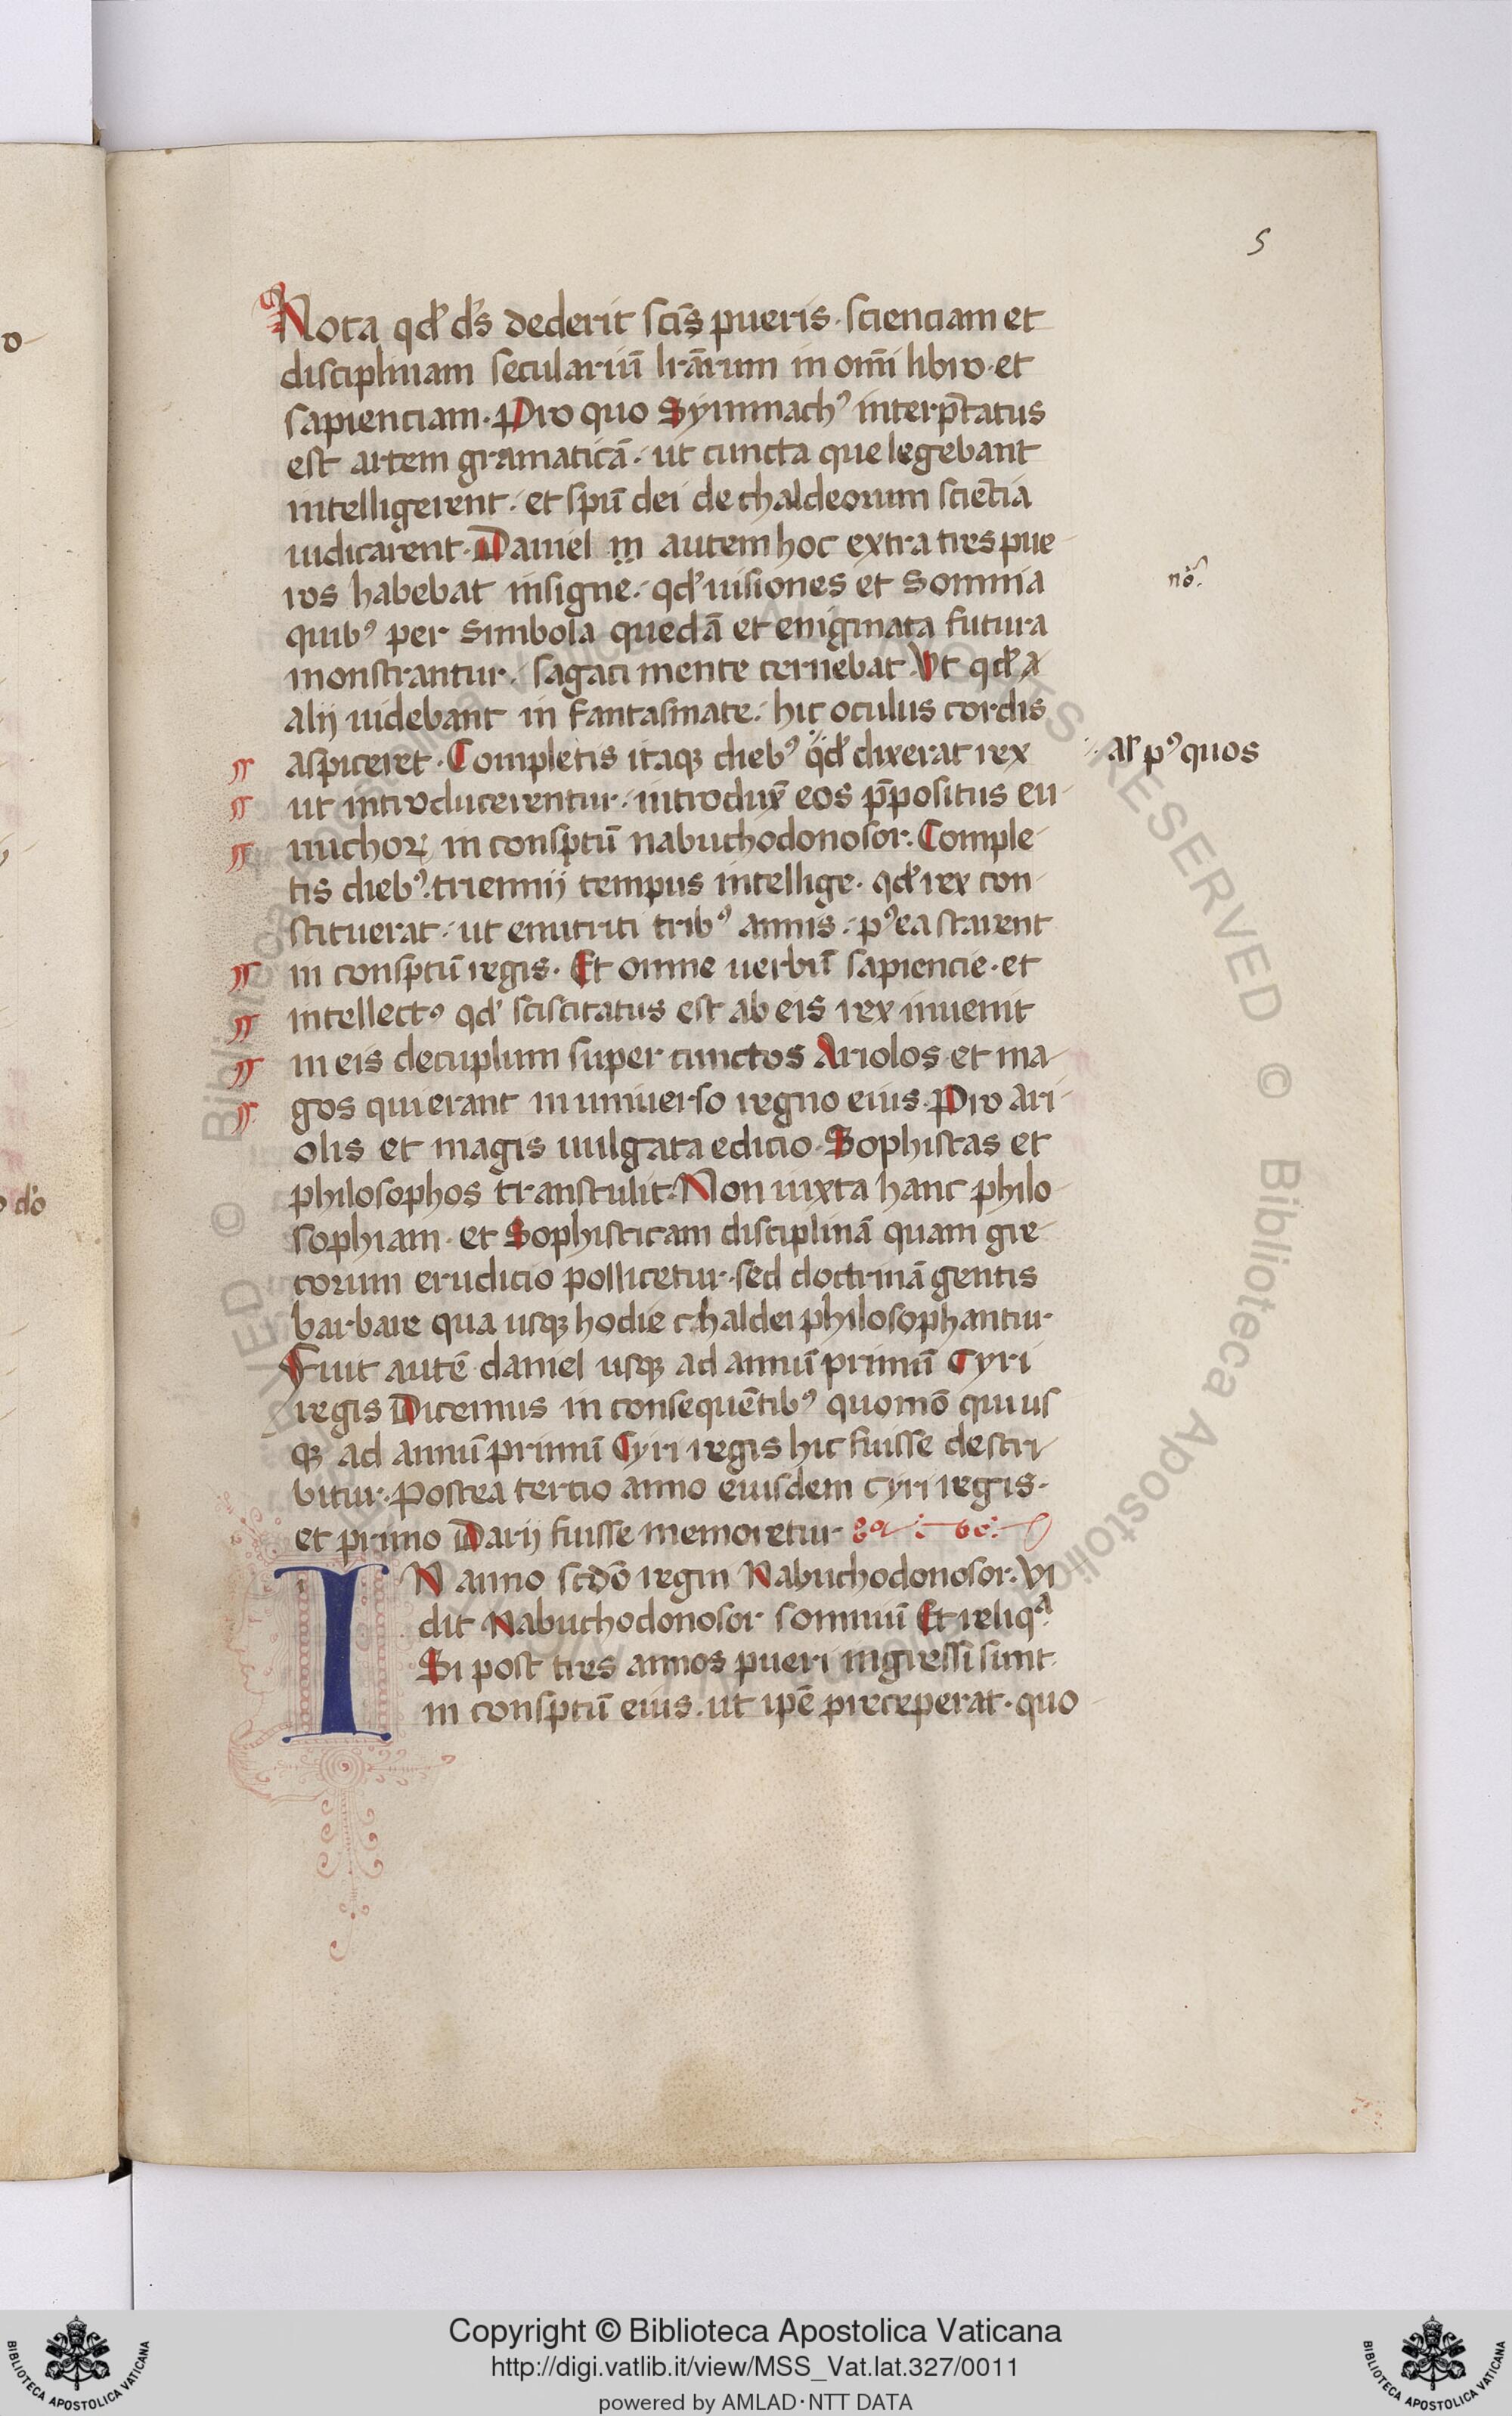 5
Nota qd' ds̄ dederit scīs pueris · scienciam et
disciplinam seculariū lr̄arum in om̄i libro · et
sapienciam · Pro quo Symmachꝰ interp̄tatus
est artem gramaticā · ut cuncta que legebant
intelligerent · et spū dei de chaldeorum sciētia
iudicarent · Daniel in autem hoc extra tres pue
ros habebat insigne · qd' uisiones et somnia
no.
quibꝰ per simbola quedā et enigmata futura
monstrantur · sagaci mente cernebat · Vt qd' a
alij uidebant in fantasmate · hic oculus cordis
aspiceret · Completis itaqꝫ diebꝰ qd' dixerat rex
al' pꝰ quos
ut introducerentur · introdux̄ eos p̄positus eu
nuchoꝝ in conspc̄tū nabuchodonosor · Comple
tis diebꝰ · triennij tempus intellige · qd' rex con
stituerat · ut enutriti tribꝰ annis · pꝰea starent
in conspc̄tū regis · Et omne uerbū sapiencie · et
intellectꝰ qd' sciscitatus est ab eis rex inuenit
in eis decuplum super cunctos Ariolos et ma
gos qui erant in uniuerso regno eius · Pro ari
olis et magis uulgata edicio · Sophistas et
philosophos transtulit · Non iuxta hanc philo
sophiam · et Sophisticam disciplinā quam gre
corum erudicio pollicetur · sed doctrinā gentis
barbare qua usqꝫ hodie chaldei philosophantur
Fuit autē daniel usqꝫ ad annū primū Cyri
regis Dicemus in consequētibꝰ quomō qui us
qꝫ ad annū primū Cyri regis hic fuisse descri
bitur · Postea tercio anno eiusdem cyri regis ·
et primo Darij fuisse memoretur
IN anno scd̄o regni Nabuchodonosor · Vi
dit Nabuchodonosor somniū Et reliqᵃ
Si post tres annos pueri ingressi sunt
in conspc̄tū eius · ut ipē preceperat · quo
Copyright © Biblioteca Apostolica Vaticana
http://digi.vatlib.it/view/MSS_Vat.lat.327/0011
powered by AMLAD·NTT DATA
BIBLIOTECA APOSTOLICA VATICANA
BIBLIOTECA APOSTOLICA VATICANA